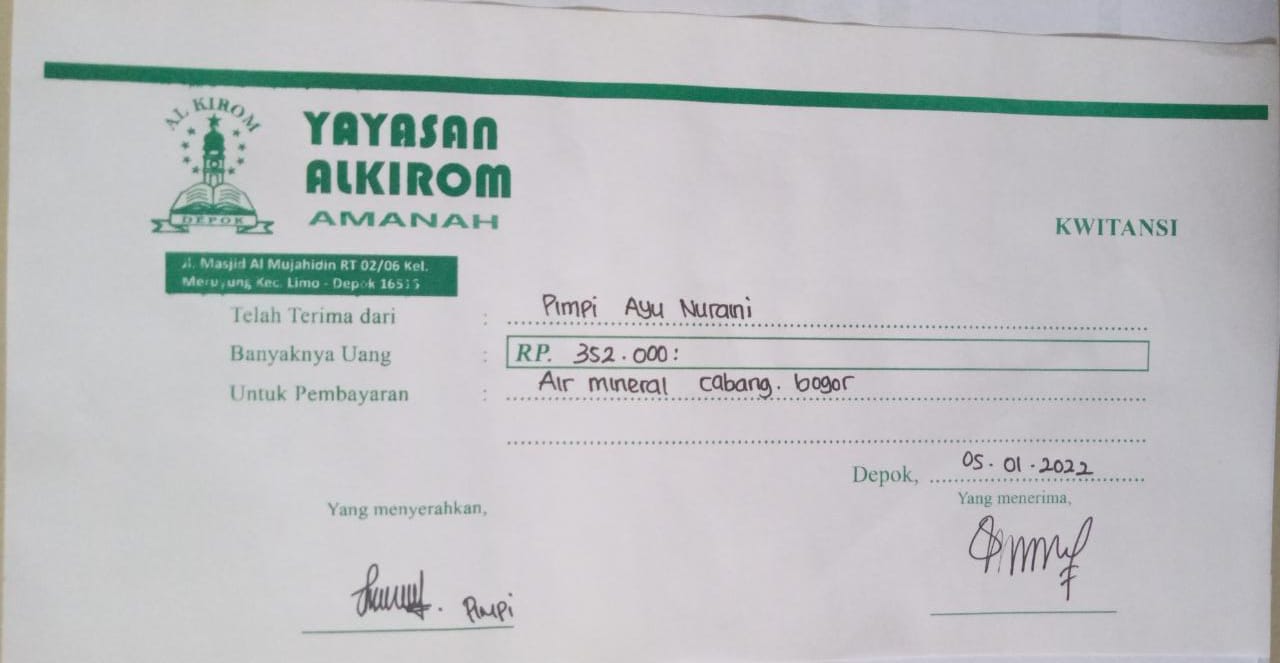 AL KIROM
DEPOK
YAYASAN
ALKIROM
AMANAH
KWITANSI
Jl. Masjid Al Mujahidin RT 02/06 Kel.
Meruyung Kec. Limo - Depok
Telah Terima dari : Pimpi Ayu Nuraini
Banyaknya Uang : RP. 352.000:
Untuk Pembayaran : Air mineral cabang. bogor
Depok, 05.01.2022
Yang menyerahkan,
Yang menerima,
Pimpi